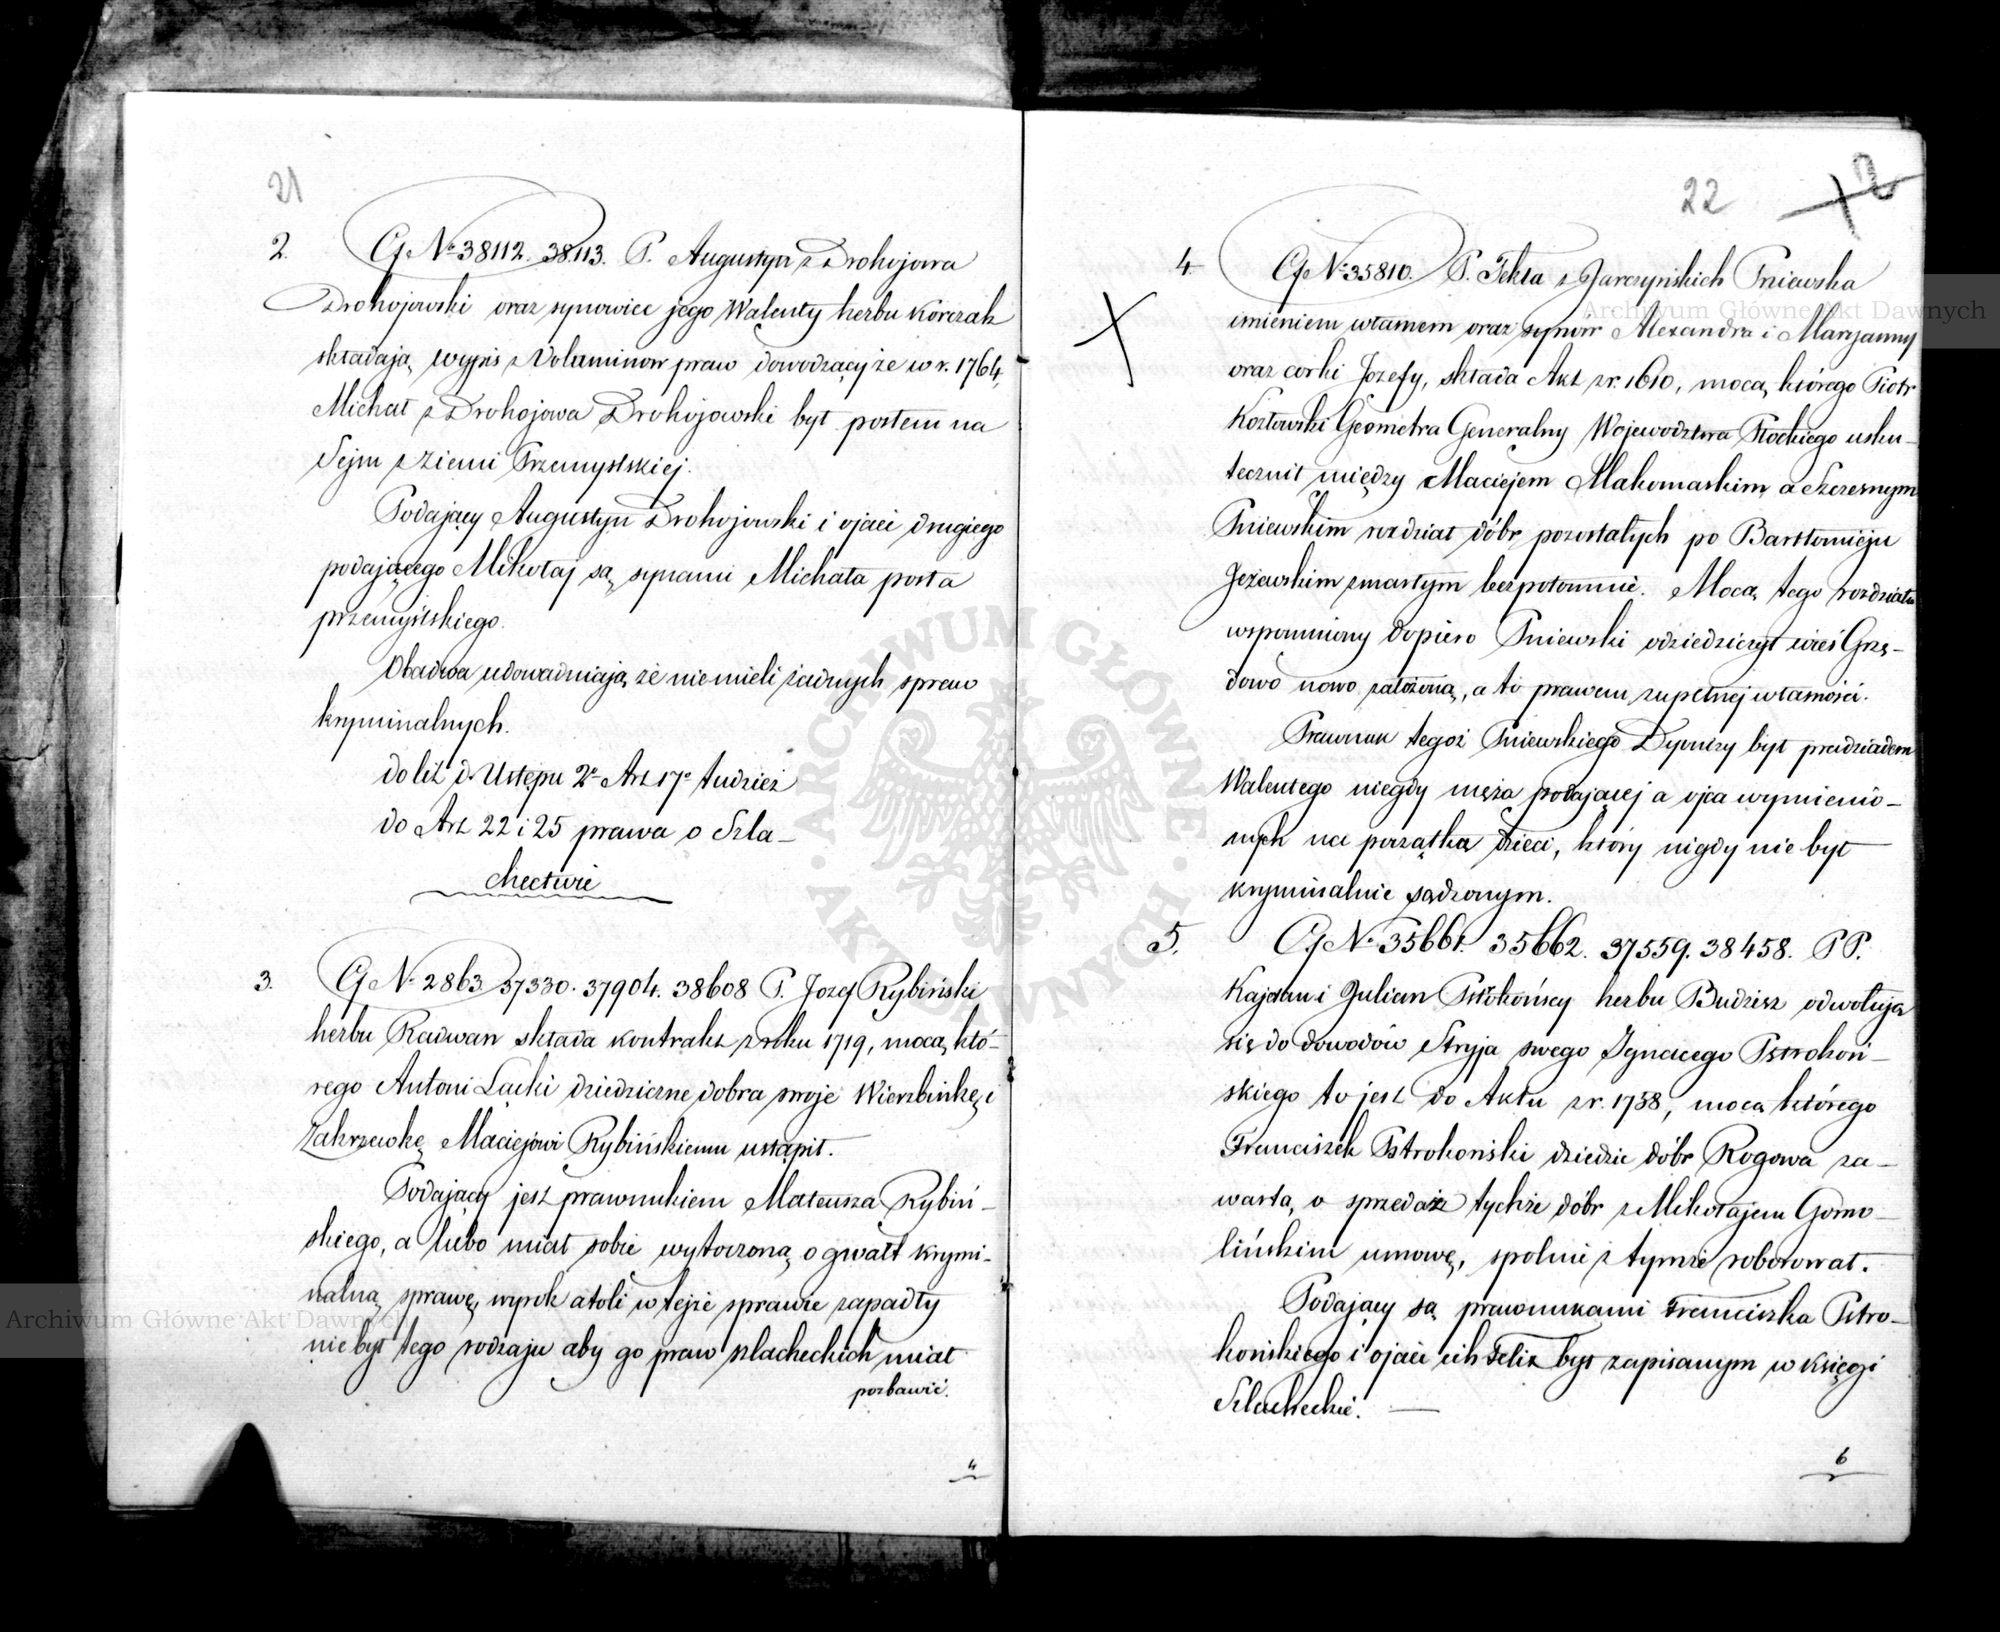 21
2. Cf No 38112. 38113. P. Augustyn z Drohojowa
Drohojowski oraz synowiec jego Walenty herbu Korczak
składają wypis z Voluminow praw dowodzący że w r. 1764,
Michał z Drohojowa Drohojowski był posłem na
Sejm z Ziemi Przemyslskiej.
Podający Augustyn Drohojowski i ojciec drugiego
podającego Mikołaj są synami Michała posła
przemyślskiego.
Obadwa udowadniają że niemieli żadnych spraw
kryminalnych.
do lit d. Ustępu 2o Art 17o tudzież
do Art 22 i 25 prawa o Szla-
chectwie
3. Cf No 2863 37330. 37904. 38608 P. Jozef Rybiński
herbu Radwan składa kontrakt z roku 1719, mocą któ-
rego Antoni Łącki dziedziczne dobra swoje Wierzbinkę i
Zakrzewkę Maciejowi Rybińskiemu ustąpił.
Podający jest prawnukiem Mateusza Rybiń-
skiego, a lubo miał sobie wytoczoną o gwałt krymi-
nalną sprawę, wyrok atoli w tejże sprawie zapadły
nie był tego rodzaju aby go praw szlacheckich miał
pozbawić.
4
22
4. Cf No 35810. P. Tekla z Jarczyńskich Pniewska
imieniem własnem oraz synów Alexandra i Maryanny
oraz corki Jozefy, składa Akt z r. 1610, mocą którego Piotr
Kozłowski Geometra Generalny Wojewodztwa Płockiego usku-
tecznił między Maciejem Makomaskim a Szczesnym
Pniewskim rozdział dóbr pozostałych po Bartłomieju
Jeżewskim zmarłym bezpotomnie. Mocą tego rozdziału
wspomniony dopiero Pniewski odziedziczył wieś Grzę-
dowo nowo założoną, a to prawem zupełnej własności.
Prawnuk tegoż Pniewskiego Dyonizy był pradziadem
Walentego niegdy męża podającej a ojca wymienio-
nych na początku dzieci, który nigdy nie był
kryminalnie sądzonym.
5. Cf No 35661. 35662. 37559. 38458. PP.
Kajetan i Julian Pstrokońscy herbu Budzisz odwołują
się do dowodów Stryja swego Ignacego Pstrokoń-
skiego to jest do Aktu z r. 1758, mocą którego
Franciszek Pstrokoński dziedzic dóbr Rogowa za-
wartą o sprzedaż tychże dóbr z Mikołajem Gomo-
lińskim umowę, spolnie z tymże roborował.
Podający są prawnukami Franciszka Pstro-
końskiego i ojciec ich Felix był zapisanym w Księgi
Szlacheckie.
6
Archiwum Główne Akt Dawnych
Archiwum Główne Akt Dawnych
ARCHIWUM GŁÓWNE · AKT DAWNYCH ·